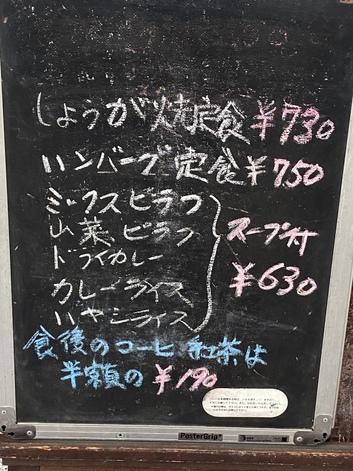 しょうが焼定食 ¥730
ハンバーグ定食 ¥750
ミックスピラフ
山菜ピラフ
ドライカレー
カレーライス
ハヤシライス
スープ付
¥630
食後のコーヒ 紅茶は
半額の ¥190
PosterGrip